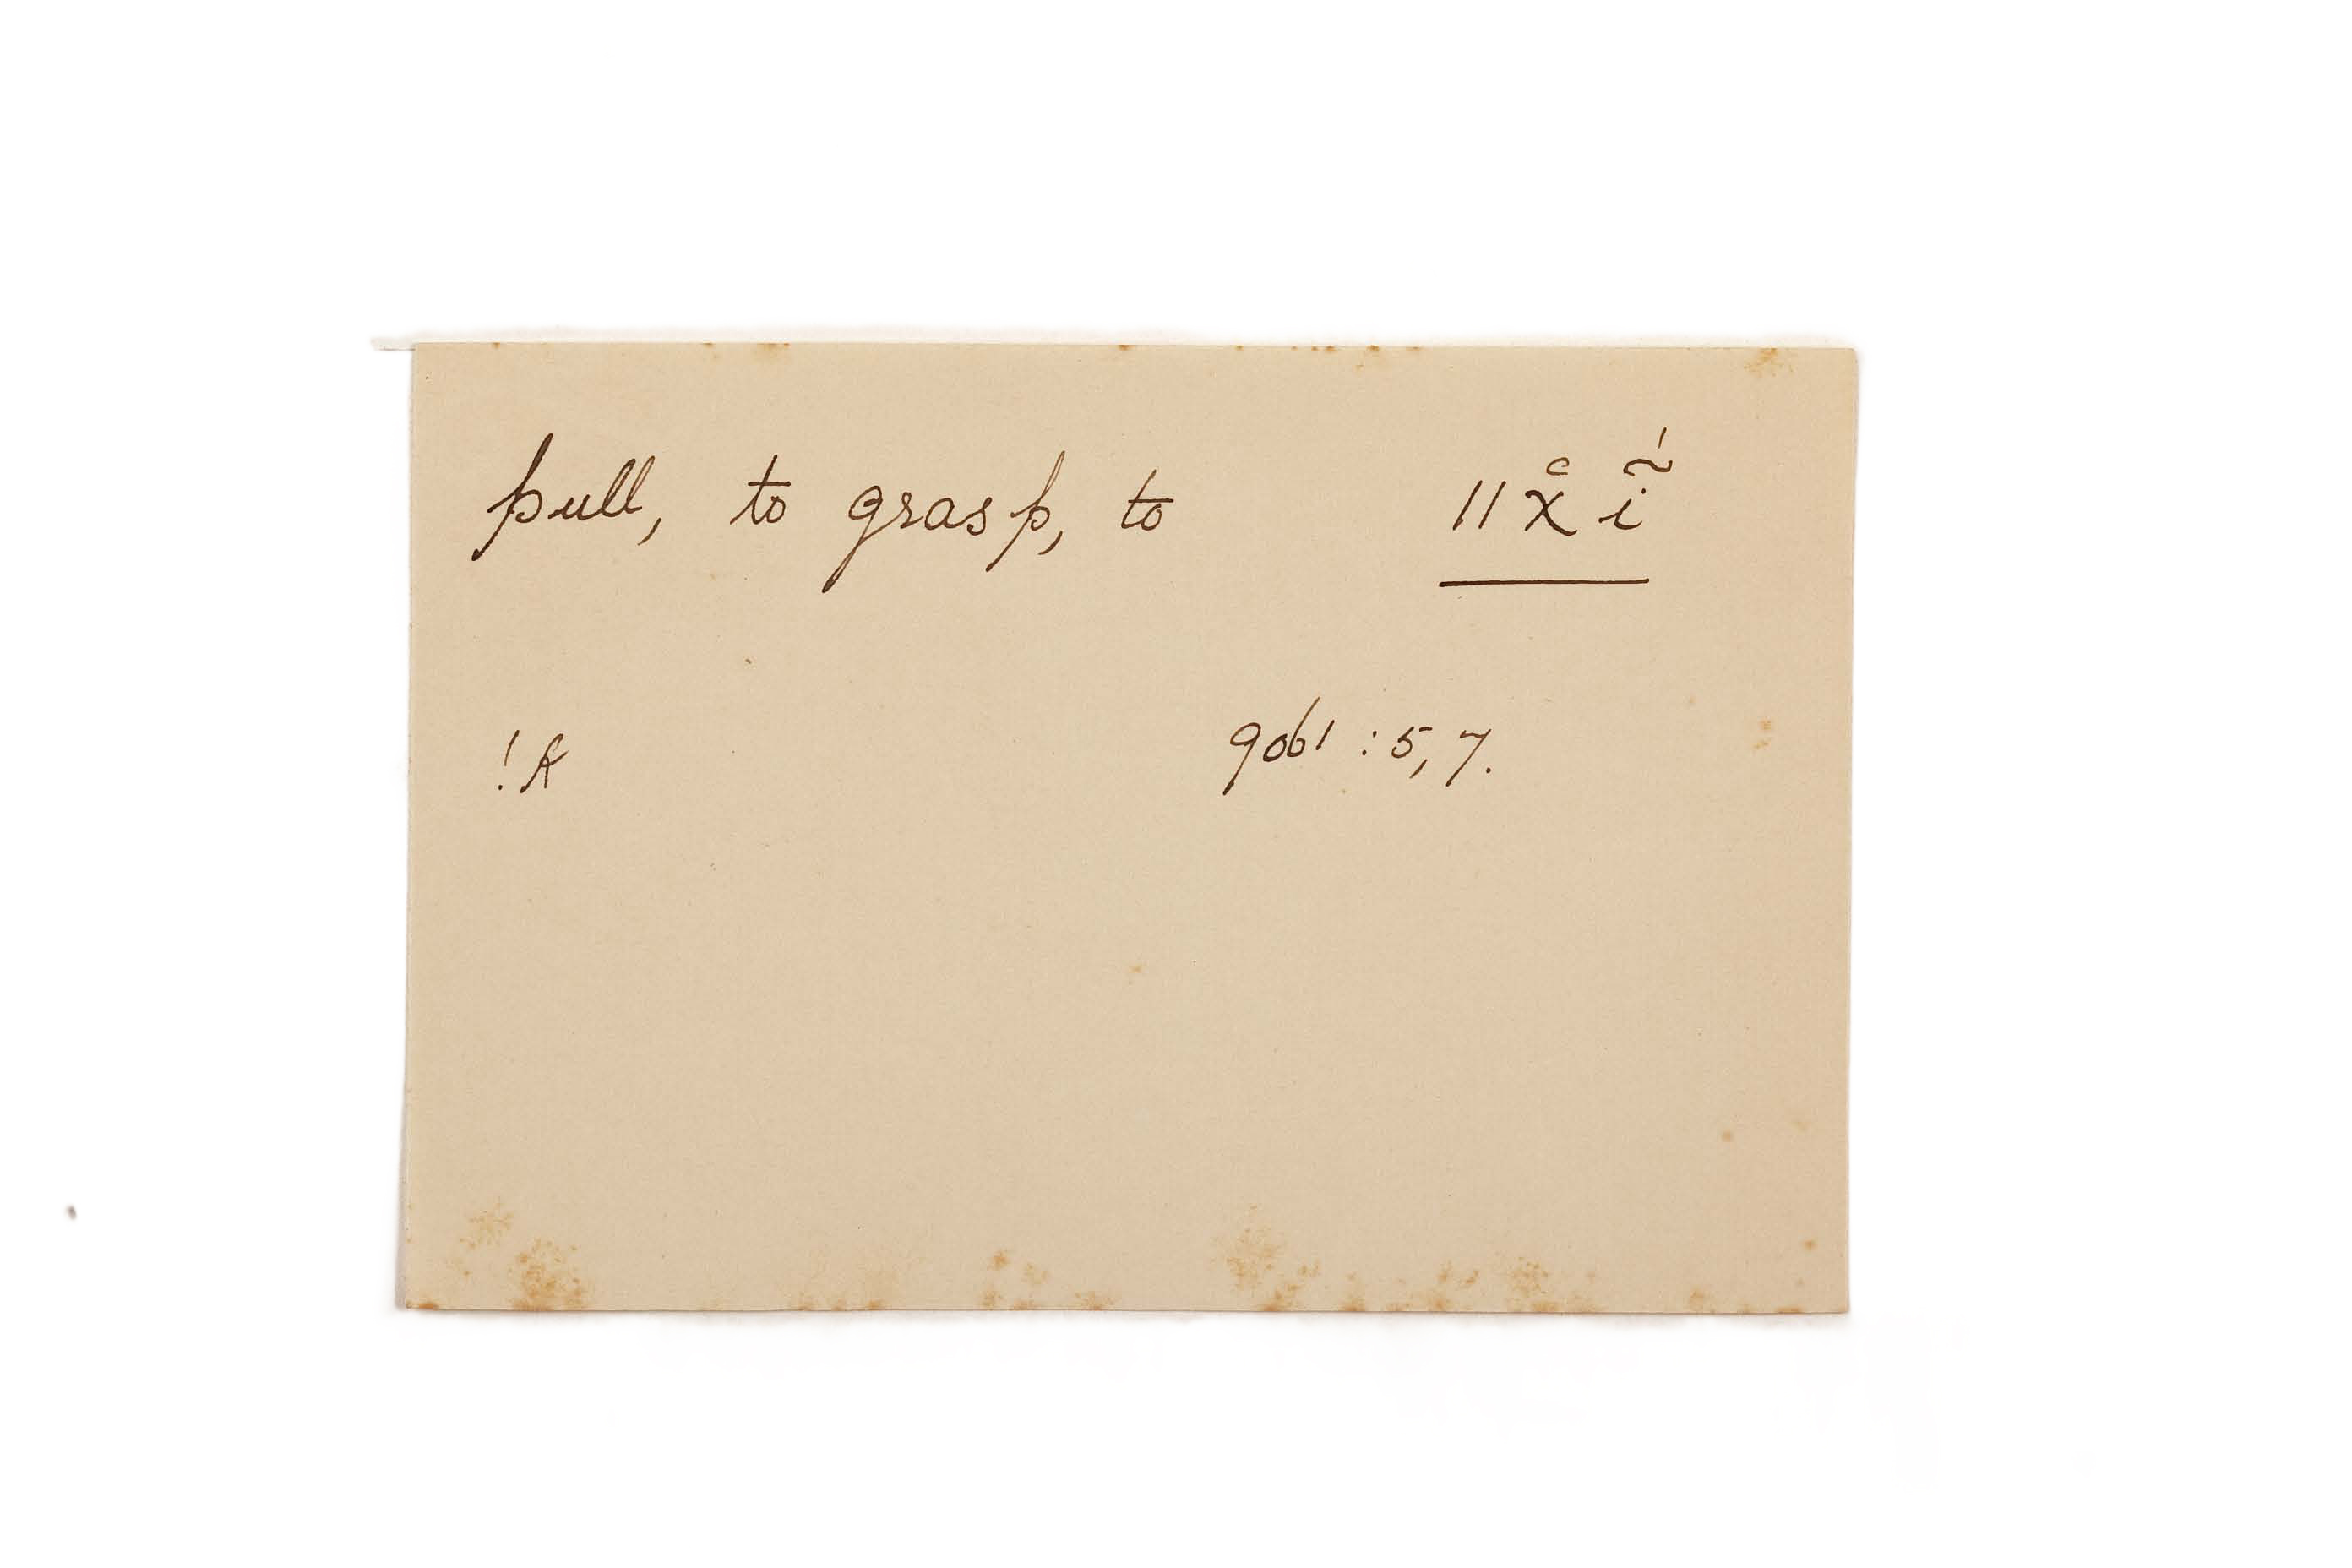 pull, to grasp, to ǁx̆ ĩ́
!k 9061 : 5, 7.